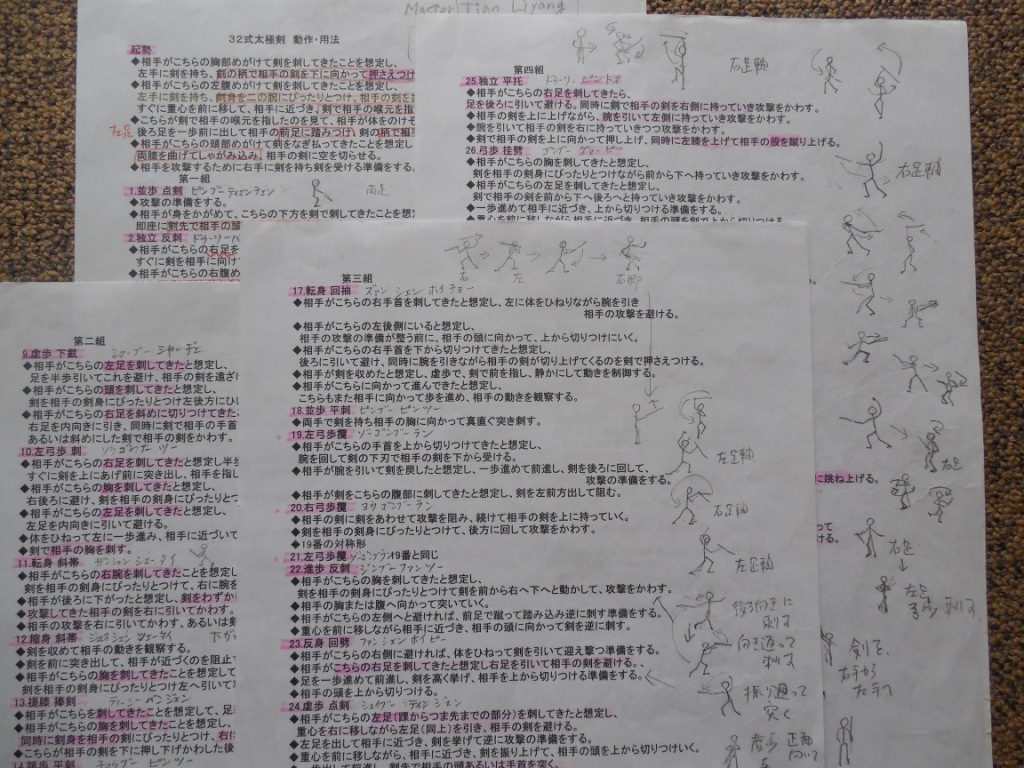 Master Tian Liyang
32式太極剣 動作・用法
起勢
◆相手がこちらの胸部めがけて剣を刺してきたことを想定し、
左手に剣を持ち、剣の柄で相手の剣を下に向かって押さえつけ
◆相手がこちらの左腹めがけて剣を刺してきたことを想定し、
左手に剣を持ち、剣身を二の腕にぴったりとつけ、相手の剣を
すぐに重心を前に移して、相手に近づき、剣で相手の喉元を指
◆剣でこちらが相手の喉元を指したのを見て、相手が体をのけそ
後ろ足を一歩前に出して相手の前足に踏みつけ、剣の柄で相手
◆相手がこちらの頭部めがけて剣をなぎ払ってきたことを想定し、
両膝を曲げてしゃがみ込み、相手の剣に空を切らせる。
◆相手を攻撃するために右手に剣を持ち剣を受ける準備をする。
第一組
1.並歩 点剣 ピンブーディェンチェン
両足
◆攻撃の準備をする。
◆相手が身をかがめて、こちらの下方を剣で刺してきたことを想
即座に剣先で相手の頭
2.独立 反刺
◆相手がこちらの右足を
すぐに剣を相手に向け
◆相手がこちらの右腹め
第四組
25.独立 平托
右足軸
◆相手がこちらの右足を刺してきたら、
足を後ろに引いて避ける。同時に剣で相手の剣を右側に持っていき攻撃をかわす。
◆相手の剣を上に上げながら、腕を引いて左側に持っていき攻撃をかわす。
◆腕を引いて相手の剣を右に持っていきつつ攻撃をかわす。
◆剣で相手の剣を上に向かって押し上げ、同時に左膝を上げて相手の股を蹴り上げる。
26.弓歩 挂劈
◆相手がこちらの胸を刺してきたと想定し、
剣を相手の剣身にぴったりとつけながら前から下へ持っていき攻撃をかわす。
◆相手がこちらの左足を刺してきたと想定し、
剣で相手の剣を前から下へ後ろへと持っていき攻撃をかわす。
◆一歩進めて相手に近づき、上から切りつける準備をする。
右足軸
に跳ね上げる。
右足
右足
左足
刺す
剣を、
右手から
左手へ
第二組
9.虚歩 下截
◆相手がこちらの左足を刺してきたと想定し、
足を半歩引いてこれを避け、相手の剣を遠ざけ
◆相手がこちらの頭を刺してきたと想定し、
剣を相手の剣身にぴったりとつけ左後方にひ
◆相手がこちらの右足を斜めに切りつけてきた
右足を内向きに引き、同時に剣で相手の手首
あるいは斜めにした剣で相手の剣をかわす。
10.左弓歩 刺
◆相手がこちらの右足を刺してきたと想定し半歩
すぐに剣を上にあげ前に突き出し、相手を指し
◆相手がこちらの胸を刺してきたと想定し、
右後ろに避け、剣を相手の剣身にぴったりとつ
◆相手がこちらの左足を刺してきたと想定し、
左足を内向きに引いて避ける。
◆体をひねって左に一歩進み、相手に近づいて
◆剣で相手の胸を刺す。
11.転身 斜帯
◆相手がこちらの右腕を刺してきたことを想定し、
剣を相手の剣身にぴったりとつけて、右に腕を
◆相手が後ろに下がったと想定し、剣をわずか
◆攻撃してきた相手の剣を右に引いてかわす。
◆相手の攻撃を右に引いてかわす、あるいは剣
12.縮身 斜帯
◆剣を収めて相手の動きを観察する。
◆剣を前に突き出して、相手が近づくのを阻止
◆相手がこちらの胸を刺してきたことを想定して
剣を相手の剣身にぴったりとつけ左へ引いて
13.提膝 捧剣
◆相手がこちらを刺してきたことを想定して、足
◆相手がこちらの胸を刺してきたことを想定し、
同時に剣身を相手の剣にぴったりとつけ、右に
◆こちらが相手の剣を下に押し下げかわした後
14.跳歩 平刺
第三組
右 左 右脚
17.転身 回抽
◆相手がこちらの右手首を刺してきたと想定し、左に体をひねりながら腕を引き
相手の攻撃を避ける。
◆相手がこちらの左後側にいると想定し、
相手の攻撃の準備が整う前に、相手の頭に向かって、上から切りつけにいく。
◆相手がこちらの右手首を下から切りつけてきたと想定し、
後ろに引いて避け、同時に腕を引きながら相手の剣が切り上げてくるのを剣で押さえつける。
◆相手が剣を収めたと想定し、虚歩で、剣で前を指し、静かにして動きを制御する。
◆相手がこちらに向かって進んできたと想定し、
こちらもまた相手に向かって歩を進め、相手の動きを観察する。
18.並歩 平刺 ピンブー ピンツー
◆両手で剣を持ち相手の胸に向かって真直ぐ突き刺す。
19.左弓歩攬 ゾーゴンブーラン
◆相手がこちらの手首を上から切りつけてきたと想定し、
腕を回して剣の下刃で相手の剣を下から受ける。
◆相手が腕を引いて剣を戻したと想定し、一歩進めて前進し、剣を後ろに回して、
攻撃の準備をする。
左足軸
◆相手が剣をこちらの腹部に刺してきたと想定し、剣を左前方出して阻む。
20.右弓歩攬 ヨウゴンブーラン
◆相手の剣に剣をあわせて攻撃を阻み、続けて相手の剣を上に持っていく。
◆剣を相手の剣身にぴったりとつけ、後方に回して攻撃をかわす。
◆19番の対称形
右足軸
21.左弓歩攬 19番と同じ
22.進歩 反刺 ジンブーファンツー
左足軸
◆相手がこちらの胸を刺してきたと想定し、
剣を相手の剣身にぴったりとつけながら剣を前から右へ下へと動かして、攻撃をかわす。
◆相手の胸または腹へ向かって突いていく。
◆相手がこちらの左側へと避ければ、前足で蹴って踏み込み逆に刺す準備をする。
◆重心を前に移しながら相手に近づき、相手の頭に向かって剣を逆に刺す。
後ろ向きに
刺す
23.反身 回劈 ファンシェン ホイピー
◆相手がこちらの右側に避ければ、体をひねって剣を引いて迎え撃つ準備をする。
◆相手がこちらの右足を刺してきたと想定し右足を引いて相手の剣を避ける。
◆足を一歩進めて前進し、剣を高く挙げ、相手を上から切りつける準備をする。
◆相手の頭を上から切りつける。
向き返って
刺す
振り返って
突く
24.虚歩 点剣
◆相手がこちらの左足(踝からつま先までの部分)を刺してきたと想定し、
重心を右に移しながら左足(同上)を引き、相手の剣を避ける。
◆左足を出して相手に近づき、剣を挙げて逆に攻撃の準備をする。
◆重心を前に移しながら、相手に近づき、剣を振り上げて、相手の頭を上から切りつけにいく。